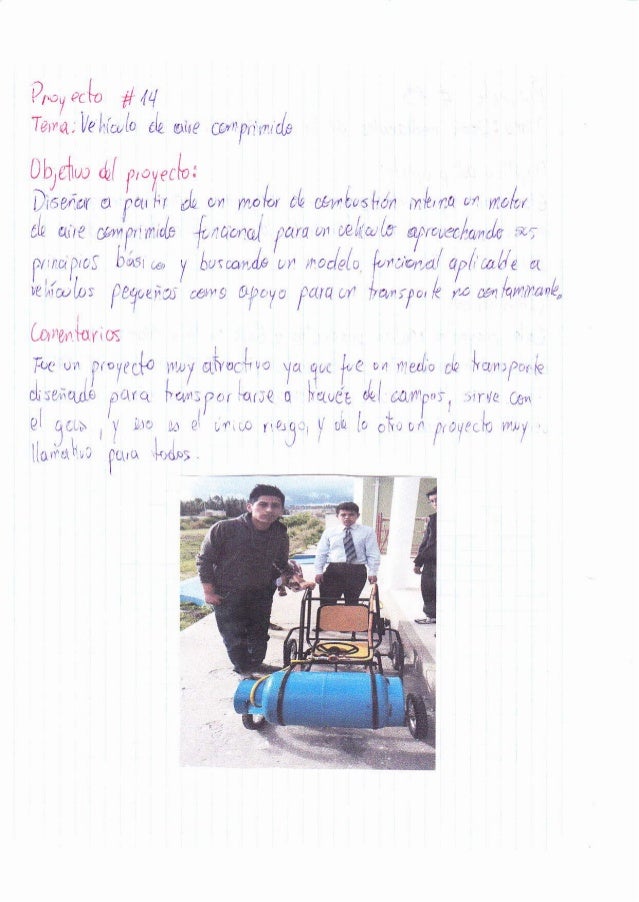 Proyecto # 14
Tema: Vehiculo de aire comprimido
Objetivo del proyecto:
Diseñar a partir de un motor de combustión interna un motor
de aire comprimido funcional para un vehículo aprovechando sus
principios básicos y buscando un modelo funcional aplicable a
vehículos pequeños como apoyo para un transporte no contaminante.
Comentarios
Fue un proyecto muy atractivo ya que fue un medio de transporte
diseñado para transportarse a través del campus, sirve con
el gas, y eso es el único riesgo, y de lo otro un proyecto muy
llamativo para todos.